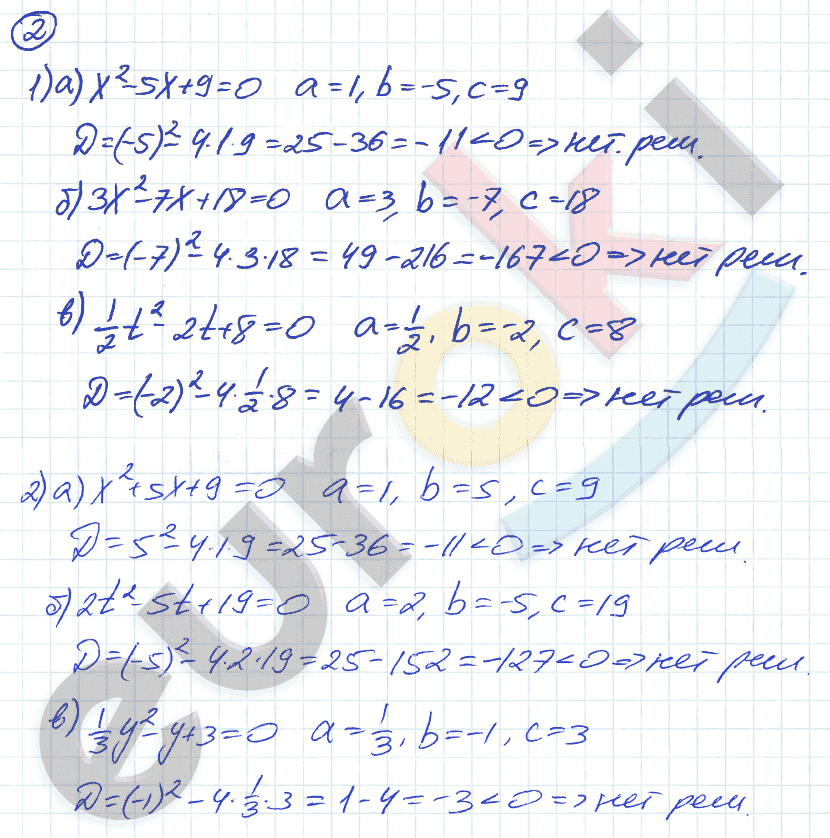 2
1) а) x²-5x+9=0 a=1, b=-5, c=9
D=(-5)²-4·1·9=25-36=-11<0=>нет. реш.
б) 3x²-7x+18=0 a=3, b=-7, c=18
D=(-7)²-4·3·18=49-216=-167<0=>нет реш.
в) 1/2t²-2t+8=0 a=1/2, b=-2, c=8
D=(-2)²-4·1/2·8=4-16=-12<0=>нет реш.
2) а) x²+5x+9=0 a=1, b=5, c=9
D=5²-4·1·9=25-36=-11<0=>нет реш.
б) 2t²-5t+19=0 a=2, b=-5, c=19
D=(-5)²-4·2·19=25-152=-127<0=>нет реш.
в) 1/3y²-y+3=0 a=1/3, b=-1, c=3
D=(-1)²-4·1/3·3=1-4=-3<0=>нет реш.
euroki